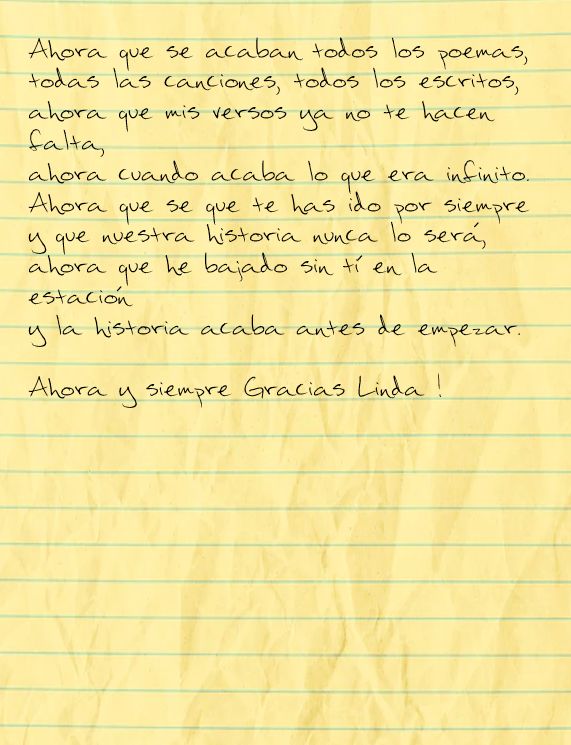 Ahora que se acaban todos los poemas,
todas las canciones, todos los escritos,
ahora que mis versos ya no te hacen
falta,
ahora cuando acaba lo que era infinito.
Ahora que se que te has ido por siempre
y que nuestra historia nunca lo será,
ahora que he bajado sin tí en la
estación
y la historia acaba antes de empezar.
Ahora y siempre Gracias Linda !